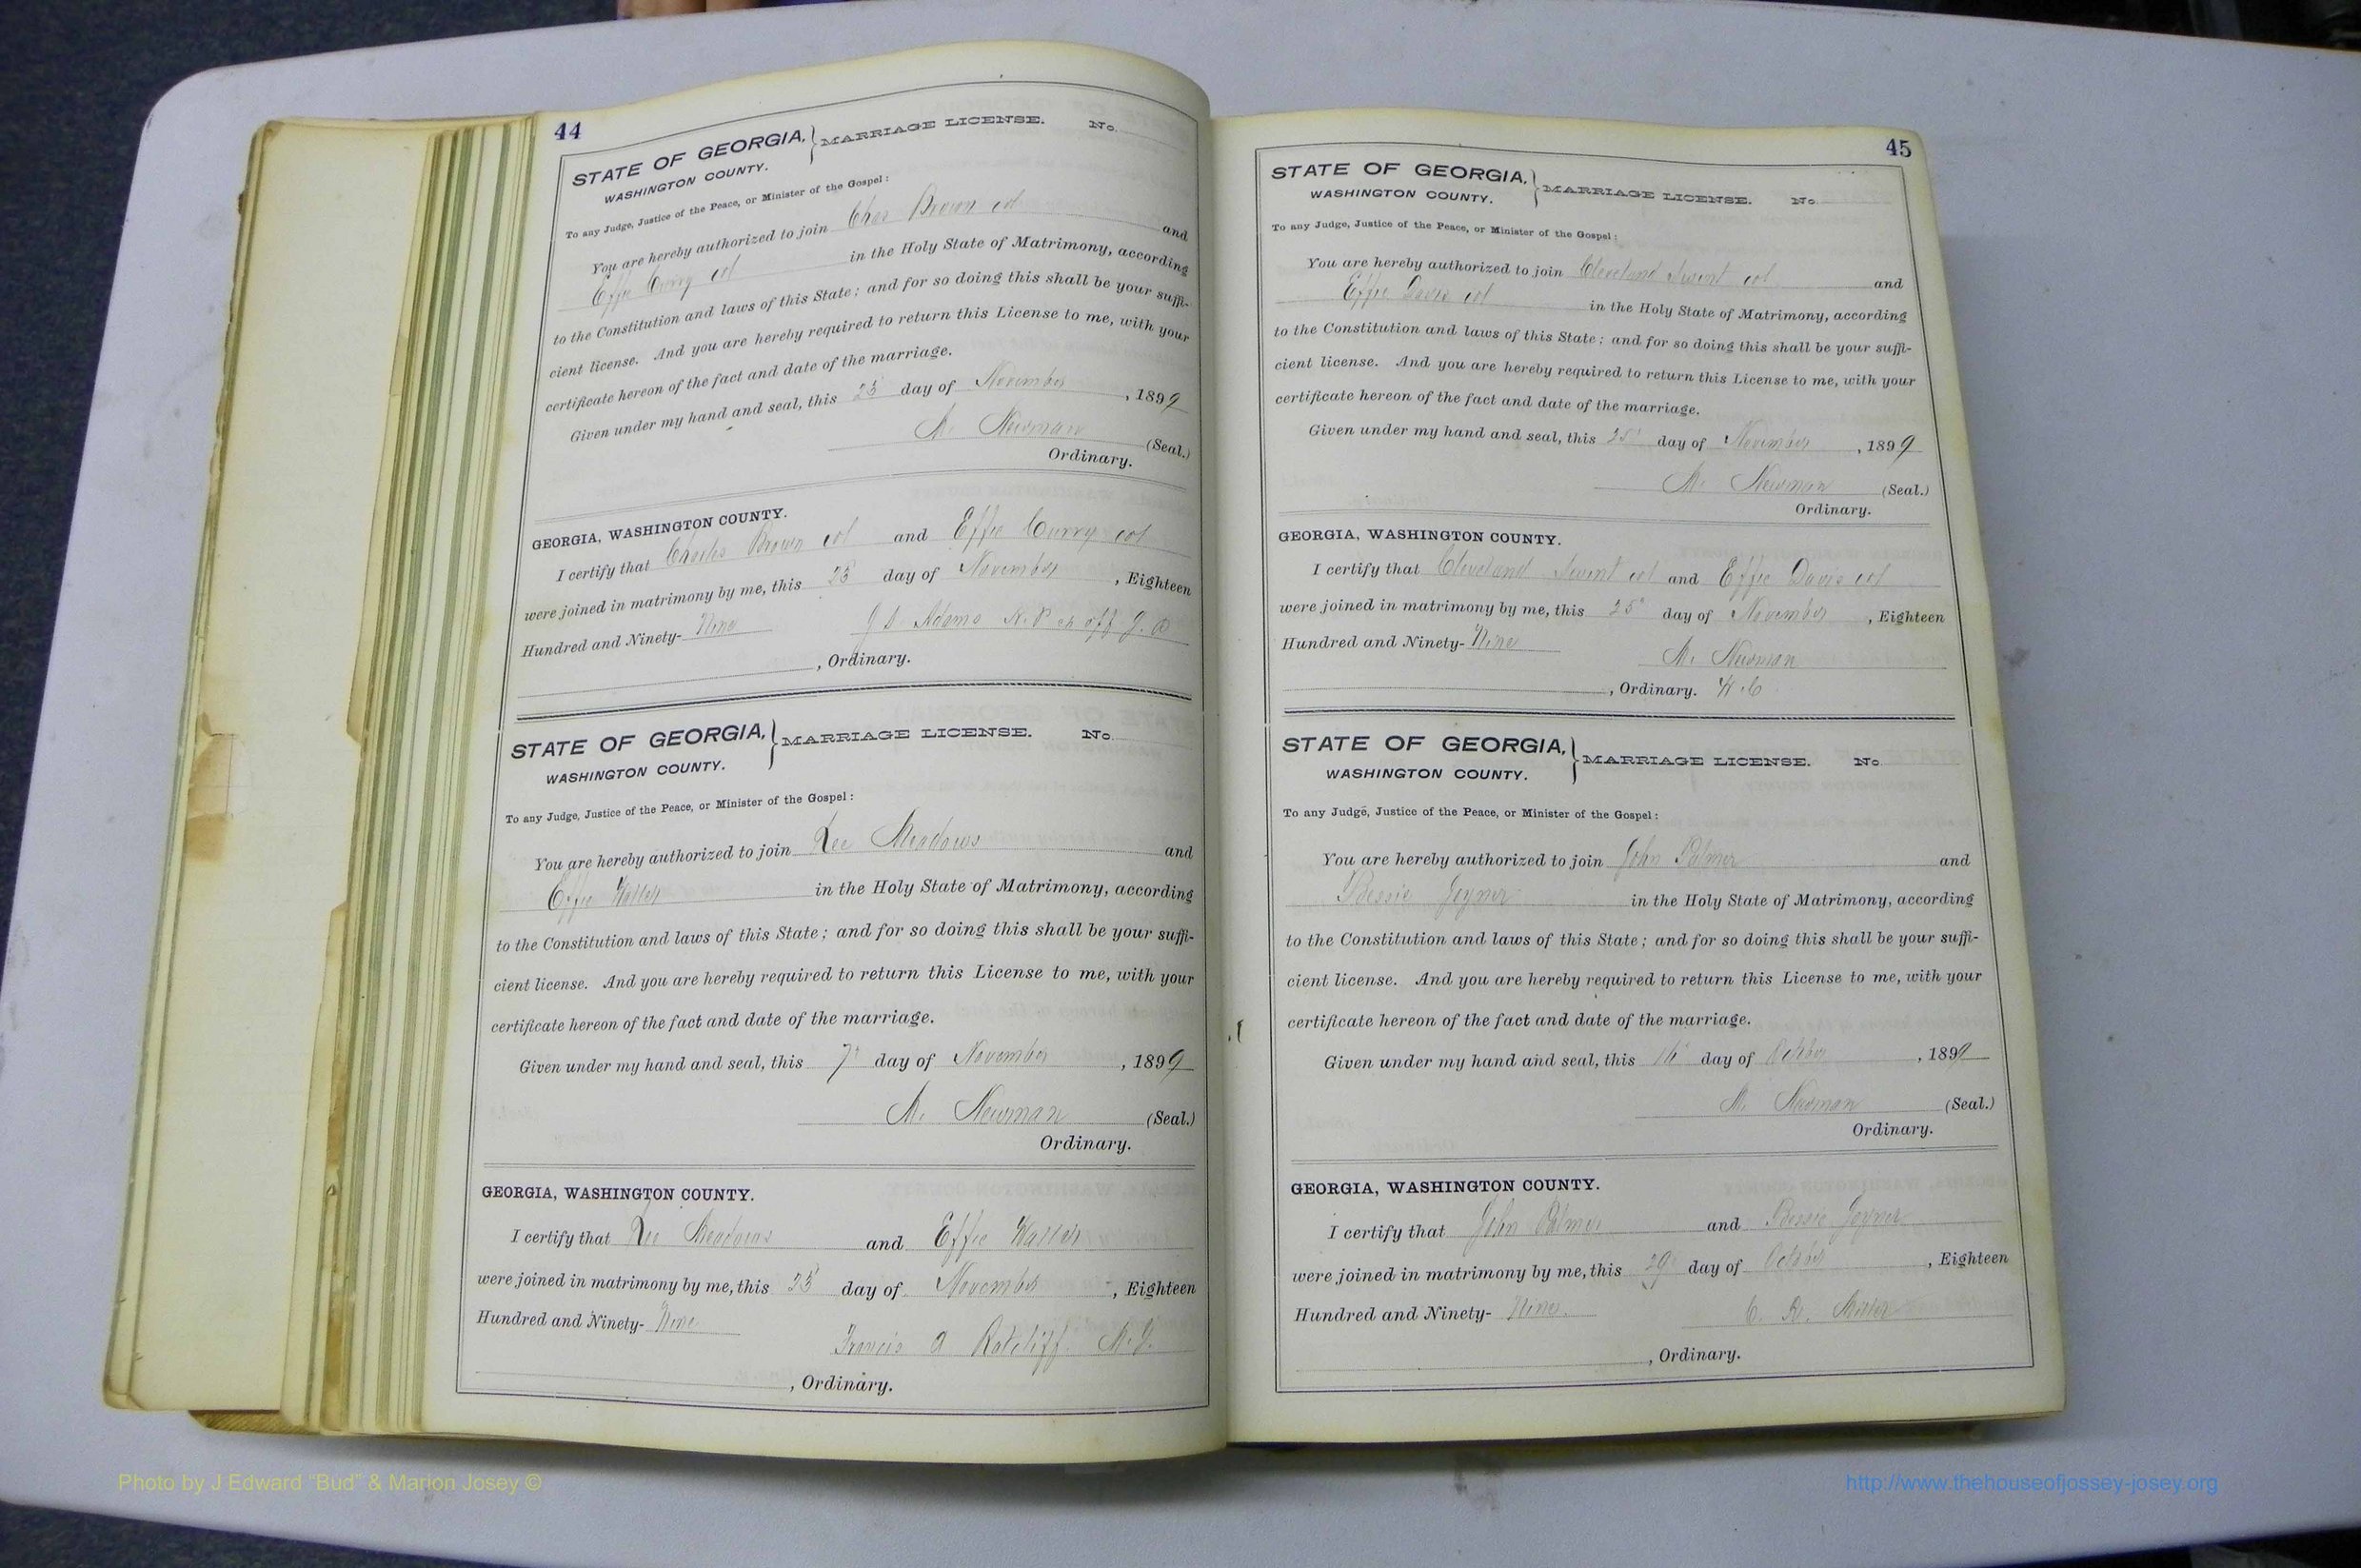 44
STATE OF GEORGIA, } MARRIAGE LICENSE. No.
WASHINGTON COUNTY.
To any Judge, Justice of the Peace, or Minister of the Gospel:
You are hereby authorized to join Chas Brown col and
Effie Curry col in the Holy State of Matrimony, according
to the Constitution and laws of this State; and for so doing this shall be your suffi-
cient license. And you are hereby required to return this License to me, with your
certificate hereon of the fact and date of the marriage.
Given under my hand and seal, this day of November, 1899
M. Newman (Seal.)
Ordinary.
GEORGIA, WASHINGTON COUNTY.
I certify that Charles Brown col and Effie Curry col
were joined in matrimony by me, this day of November, Eighteen
Hundred and Ninety-Nine Adams N.P. ex off J.P.
, Ordinary.
STATE OF GEORGIA, } MARRIAGE LICENSE. No.
WASHINGTON COUNTY.
To any Judge, Justice of the Peace, or Minister of the Gospel:
You are hereby authorized to join Lee Meadows and
Effie in the Holy State of Matrimony, according
to the Constitution and laws of this State; and for so doing this shall be your suffi-
cient license. And you are hereby required to return this License to me, with your
certificate hereon of the fact and date of the marriage.
Given under my hand and seal, this 7" day of November, 1899
M. Newman (Seal.)
Ordinary.
GEORGIA, WASHINGTON COUNTY.
I certify that Lee Meadows and Effie
were joined in matrimony by me, this day of November, Eighteen
Hundred and Ninety-Nine Francis A Ratcliff M.G.
, Ordinary.
45
STATE OF GEORGIA, } MARRIAGE LICENSE. No
WASHINGTON COUNTY.
To any Judge, Justice of the Peace, or Minister of the Gospel:
You are hereby authorized to join Cleveland Swint col and
Effie Davis col in the Holy State of Matrimony, according
to the Constitution and laws of this State; and for so doing this shall be your suffi-
cient license. And you are hereby required to return this License to me, with your
certificate hereon of the fact and date of the marriage.
Given under my hand and seal, this 25" day of November, 1899
M. Newman (Seal.)
Ordinary.
GEORGIA, WASHINGTON COUNTY.
I certify that Cleveland Swint col and Effie Davis col
were joined in matrimony by me, this 25" day of November, Eighteen
Hundred and Ninety-Nine M. Newman
, Ordinary. W.C
STATE OF GEORGIA, } MARRIAGE LICENSE. No
WASHINGTON COUNTY.
To any Judge, Justice of the Peace, or Minister of the Gospel:
You are hereby authorized to join John Palmer and
Bessie Joyner in the Holy State of Matrimony, according
to the Constitution and laws of this State; and for so doing this shall be your suffi-
cient license. And you are hereby required to return this License to me, with your
certificate hereon of the fact and date of the marriage.
Given under my hand and seal, this day of October, 1899
M. Newman (Seal.)
Ordinary.
GEORGIA, WASHINGTON COUNTY.
I certify that John Palmer and Bessie Joyner
were joined in matrimony by me, this 29 day of October, Eighteen
Hundred and Ninety-Nine.
, Ordinary.
Photo by J Edward "Bud" & Marion Josey ©
http://www.thehouseofjossey-josey.org